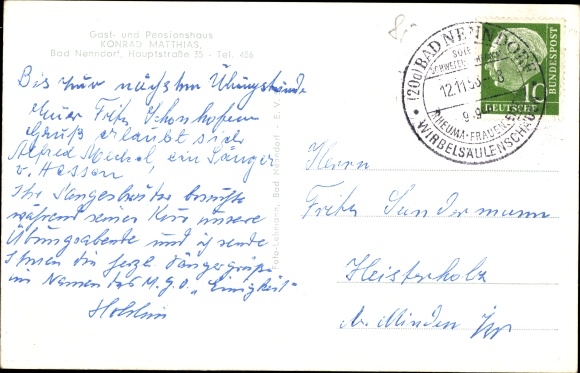 Gast- und Pensionshaus
KONRAD MATTHIAS,
Bad Nenndorf, Hauptstraße 35 - Tel. 456
Bis zur nächsten Übungsstunde
Gruß erlaubt sich
Alfred Meckel, ein Sänger
v. Hessen
Ihr Sangesbruder besuchte
während seiner Kur unsere
Übungsabende und ich sende
Ihnen die herzl. Sängergrüße
im Namen des M.G.V. „Einigkeit"
Bad Nenndorf - E. V.
(20a) BAD NENNDORF
12.11.58
RHEUMA · FRAUEN
WIRBELSÄULENSCHÄ
10
DEUTSCHE
BUNDESPOST
Herrn
Fritz Sundermann
Heisterholz
b. Minden